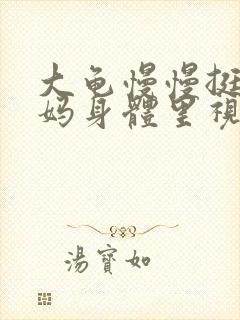 大龟慢慢挺
妈身體里視
湯寶如